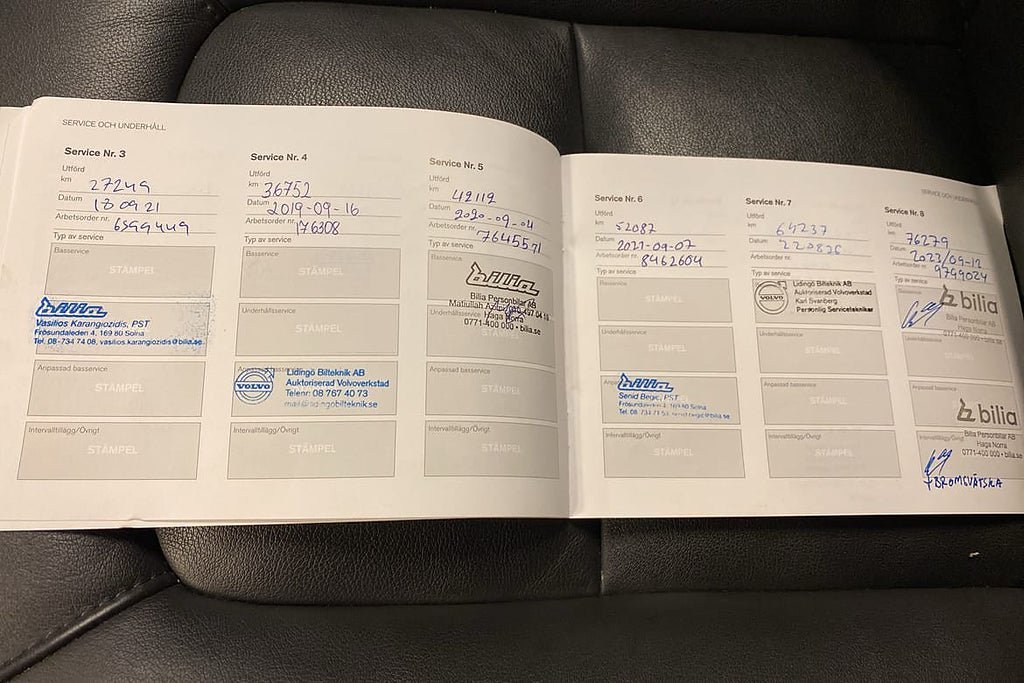 SERVICE OCH UNDERHÅLL
Service Nr. 3
Utförd
km 27249
Datum 18 09 21
Arbetsorder nr. 6599449
Typ av service
Basservice
STÄMPEL
bilia
Vasilios Karangiozidis, PST
Frösundaleden 4, 169 80 Solna
Tel. 08-734 74 08, vasilios.karangiozidis@bilia.se
Anpassad basservice
STÄMPEL
Intervalltillägg/Övrigt
STÄMPEL
Service Nr. 4
Utförd
km 36752
Datum 2019-09-16
Arbetsorder nr. 176308
Typ av service
Basservice
STÄMPEL
Underhållsservice
STÄMPEL
VOLVO
Lidingö Bilteknik AB
Auktoriserad Volvoverkstad
Telenr: 08 767 40 73
mail@lidingobilteknik.se
Intervalltillägg/Övrigt
STÄMPEL
Service Nr. 5
Utförd
km 42112
Datum 2020-09-04
Arbetsorder nr. 7645571
Typ av service
Basservice
bilia
Bilia Personbilar AB
Matiullah
Haga Norra
0771-400 000 • bilia.se
STÄMPEL
Anpassad basservice
STÄMPEL
Intervalltillägg/Övrigt
STÄMPEL
SERVICE OCH UNDERHÅLL
Service Nr. 6
Utförd
km 52087
Datum 2021-09-07
Arbetsorder nr. 8462604
Typ av service
Basservice
STÄMPEL
Underhållsservice
STÄMPEL
bilia
Senid Begic, PST
Frösundaleden 4, 169 80 Solna
Intervalltillägg/Övrigt
STÄMPEL
Service Nr. 7
Utförd
km 64237
Datum 220826
Arbetsorder nr.
Typ av service
VOLVO
Lidingö Bilteknik AB
Auktoriserad Volvoverkstad
Karl Svanberg
Personlig Servicetekniker
Underhållsservice
STÄMPEL
Anpassad basservice
STÄMPEL
Intervalltillägg/Övrigt
STÄMPEL
Service Nr. 8
Utförd
km 76279
Datum 2023/09-12
Arbetsorder nr. 9799024
Typ av service
bilia
Bilia Personbilar AB
Haga Norra
0771-400 000 • bilia.se
Underhållsservice
STÄMPEL
Anpassad basservice
bilia
Intervalltillägg/Övrigt
Bilia Personbilar AB
Haga Norra
0771-400 000 • bilia.se
+BROMSVÄTSKA